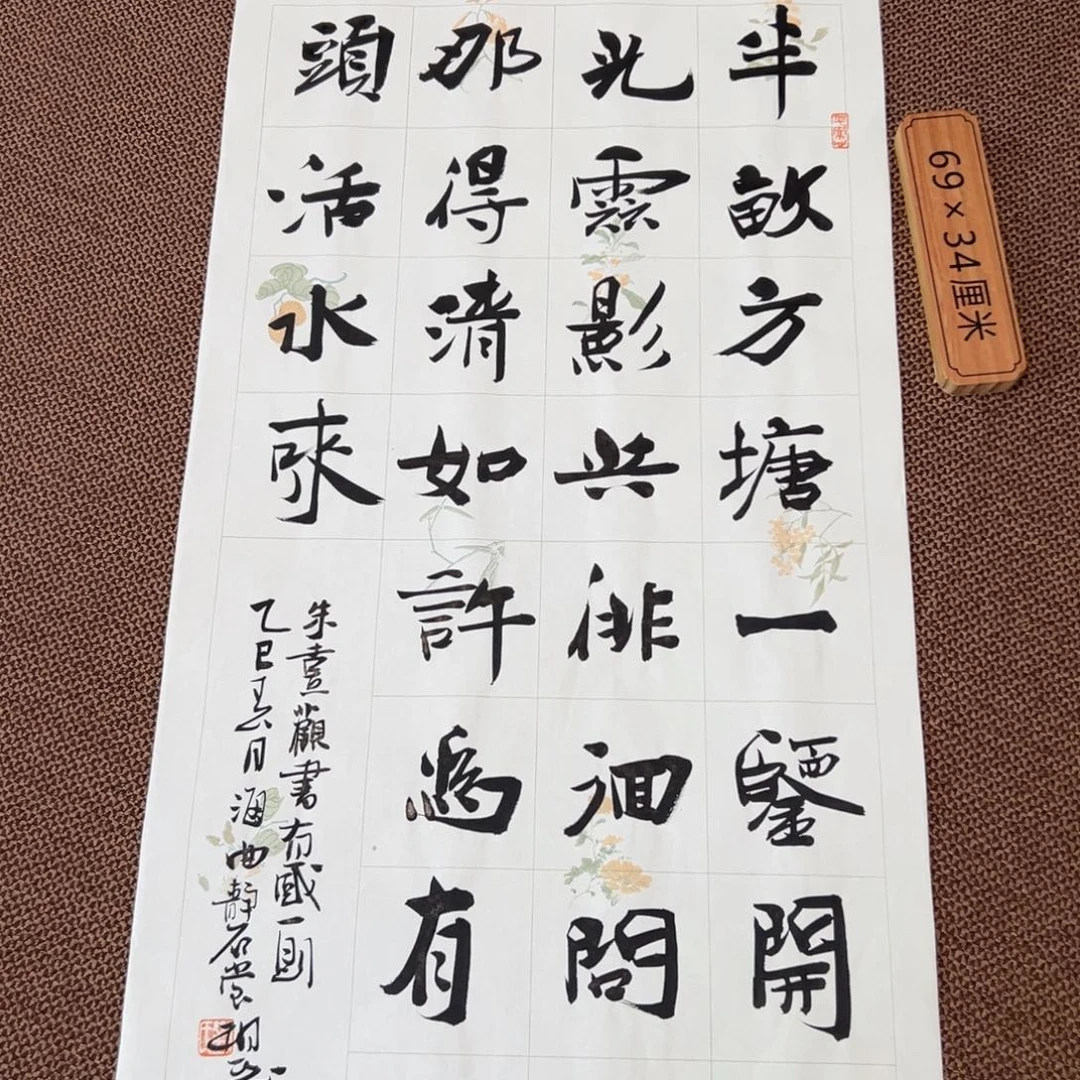 半畝方塘一鑒開
光雲影共徘徊問
那得清如許為有
頭活水來
朱熹觀書有感一則
乙巳春月海曲靜石堂
69×34厘米